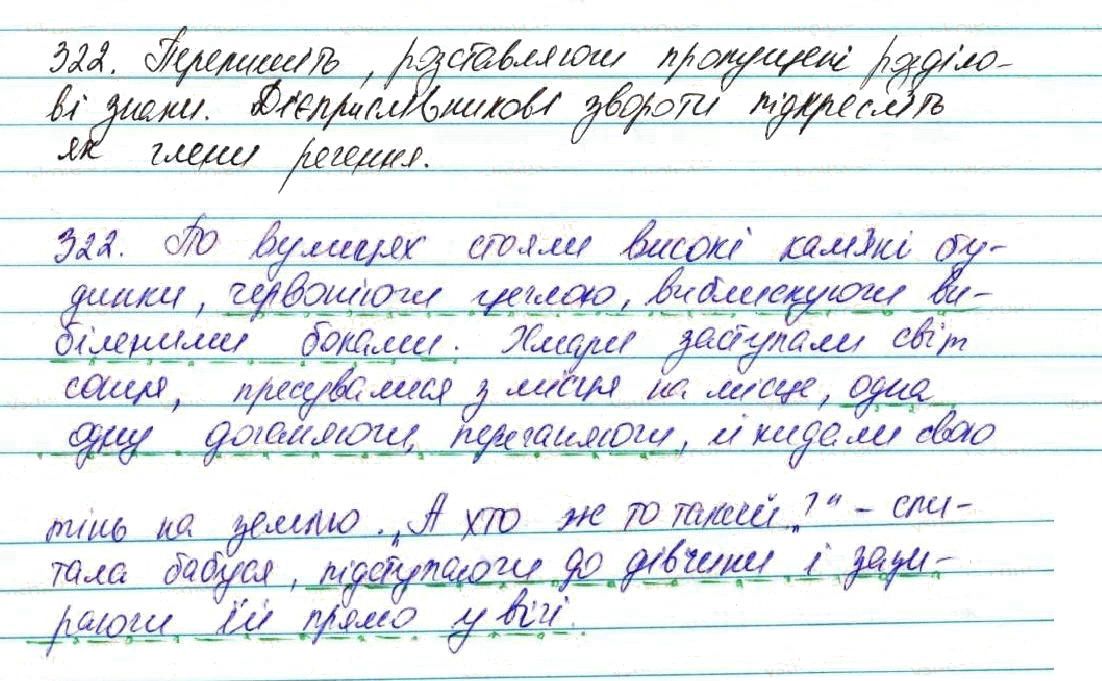 322. Перепишіть, розставляючи пропущені розділо-
ві знаки. Дієприслівникові звороти підкресліть
як члени речення.
322. По вулицях стояли високі кам'яні бу-
динки, червоніючи цеглою, виблискуючи ви-
біленими боками. Хмари заступали світ
сонця, пересувалися з місця на місце, одна
одну доганяючи, переганяючи, й кидали свою
тінь на землю. „А хто ж то такий?" - спи-
тала бабуся, підступаючи до дівчини і зази-
раючи їй прямо у вічі.